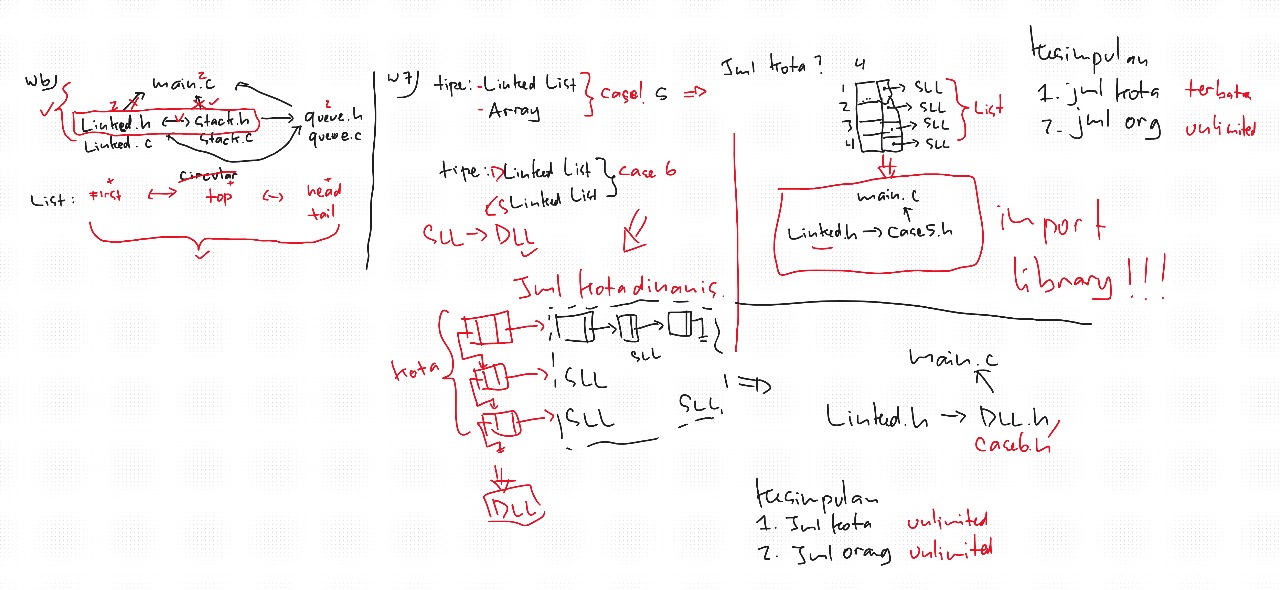 W6)
main.c
2
2
Linked.h ↔ stack.h
Linked.c
stack.c
2
queue.h
queue.c
circular
List: first ↔ top ↔ head
tail
W7)
tipe: - Linked List
- Array
case! 5 ⇒
tipe: DLinked List
SLinked List
case 6
SLL → DLL
Jml kota dinamis.
kota
SLL
SLL
SLL
SLL
DLL
Jml kota? 4
1 → SLL
2 → SLL
3 → SLL
4 → SLL
List
main.c
Linked.h → case5.h
import
library!!!
kesimpulan
1. jml kota terbatas
2. jml org unlimited
main.c
Linked.h → DLL.h
case6.h
kesimpulan
1. Jml kota unlimited
2. Jml orang unlimited